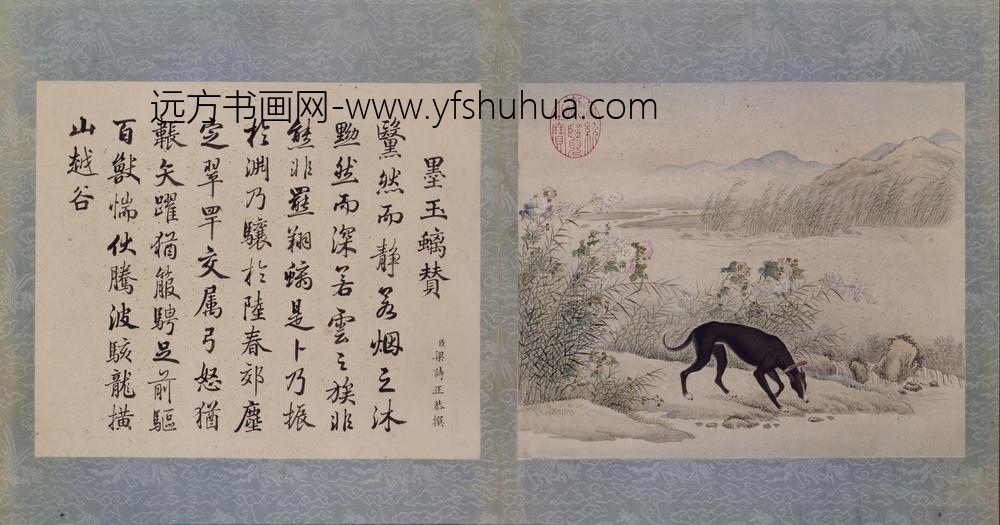 远方书画网-www.yfshuhua.com
墨玉螭賛
臣梁詩正恭撰
黳然而靜若烟之沐
黝然而深若雲之族非
熊非羆翔螭是卜乃振
於淵乃驤於陸春郊塵
定翠罕交属弓怒猶
韔矢躍猶箙騁足前驅
百獸惴伏騰波駭龍橫
山越谷